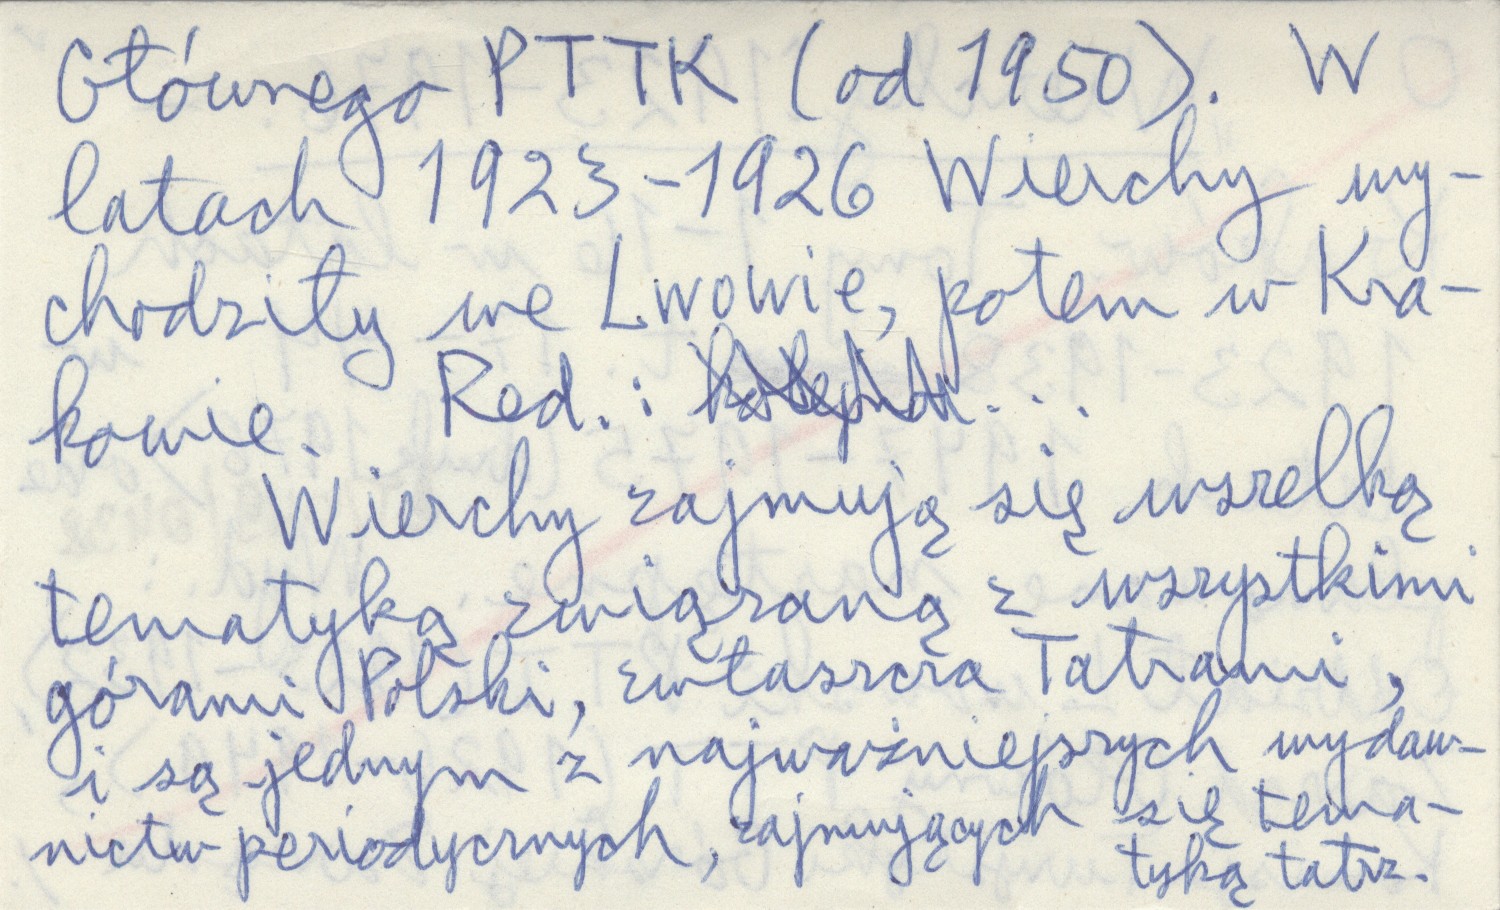 Głównego PTTK (od 1950). W
latach 1923-1926 Wierchy wy-
chodziły we Lwowie, potem w Kra-
kowie. Red.: ...
Wierchy zajmują się wszelką
tematyką związaną z wszystkimi
górami Polski, zwłaszcza Tatrami,
i są jednym z najważniejszych wydaw-
nictw periodycznych, zajmujących się tema-
tyką tatrz.